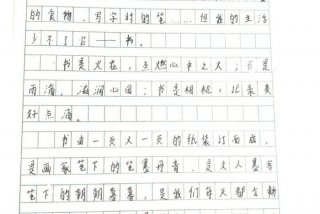 的食物、写字时的笔……但我的生活
少不了它——书。
书是火花,点燃心中之火;书是
雨滴,滋润心田;书是相机,记录美
好点滴。
书由一页又一页的纸装订而成,
是画家笔下的笔墨丹青,是文人墨客
笔下的朝朝暮暮,是我们每天都会